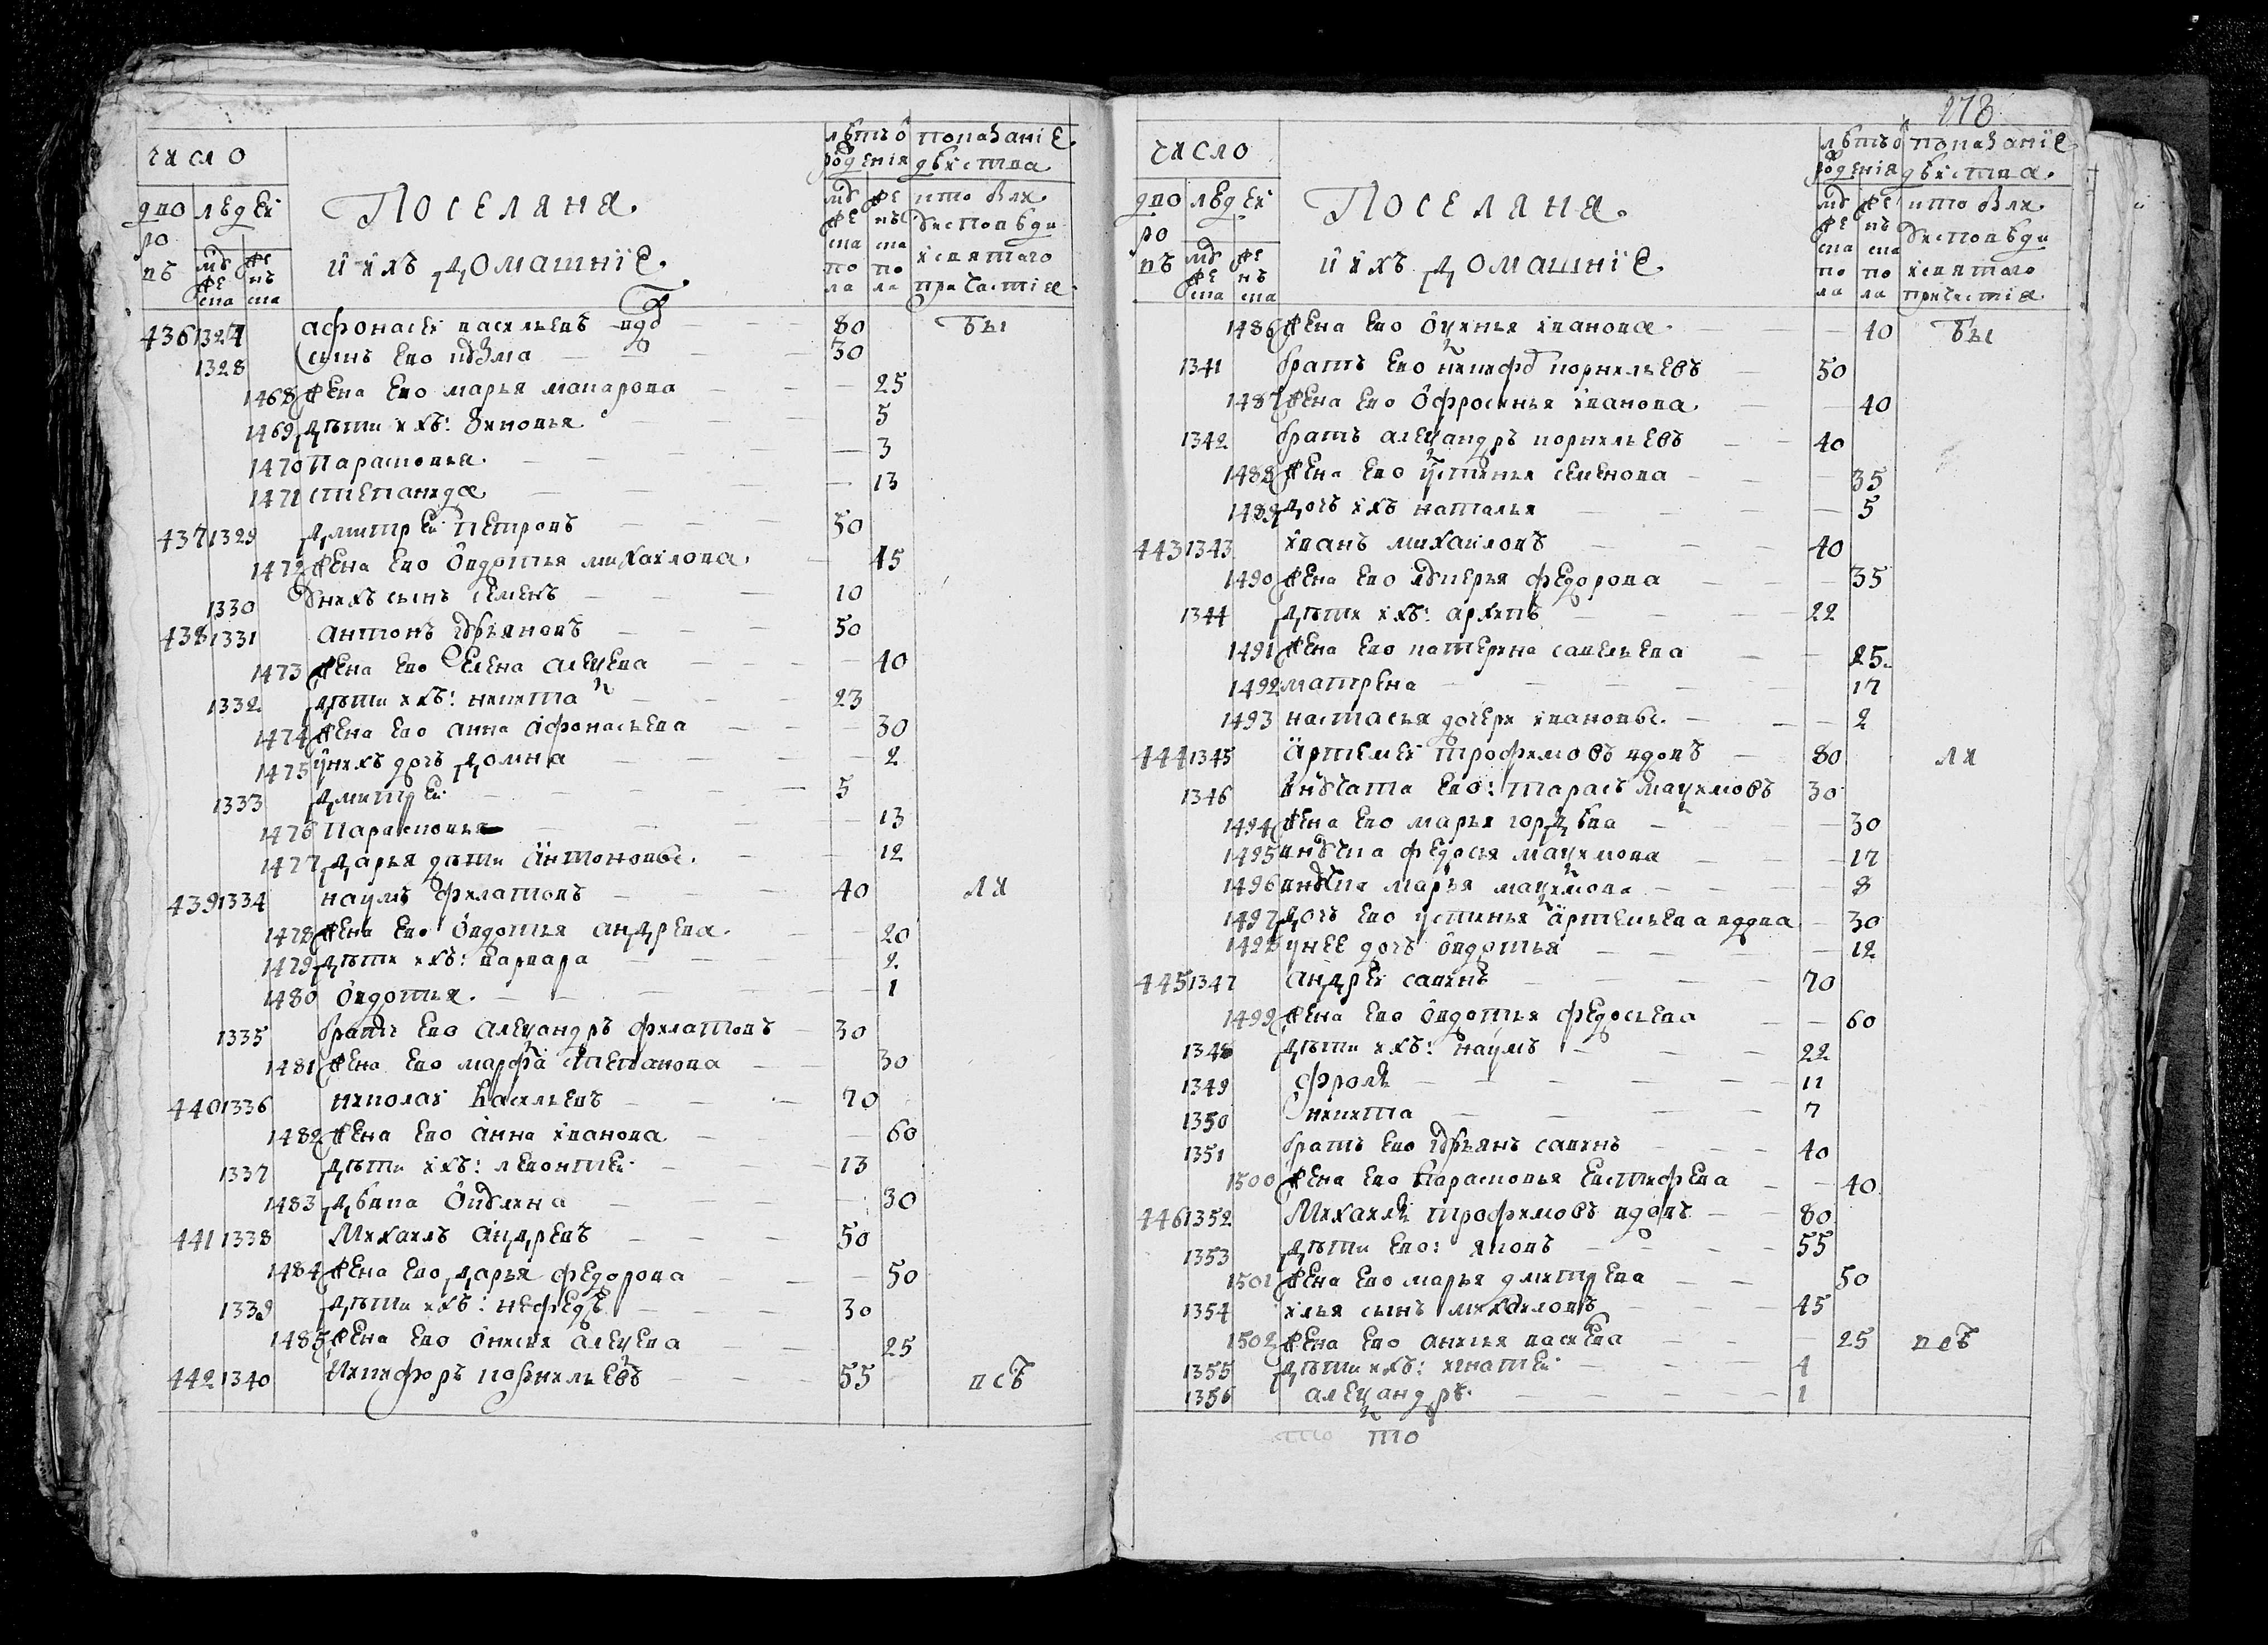 число
дворовъ
людей
мужеска
женска
Поселяня
и ихъ домашнїе
лѣтъ ѿ рожденїя
мужеска пола
женска пола
показанїе дѣиства
кто былъ у исповѣди и святаго причастїя
436 1327 афонасеи василиевъ вдовъ 80 бы
1328 сынъ ево кузма 30
1468 жена ево марья макарова 25
1469 дѣти ихъ: зиновья 5
1470 парасковья 3
1471 степанида 13
437 1329 дмитреи петровъ 50
1472 жена ево овдотья михаилова 45
1330 у нихъ сынъ семенъ 10
438 1331 антонъ юрьяновъ 50
1473 жена ево елена алеѯева 40
1332 дѣти ихъ: никита 23
1474 жена ево анна афонасьева 30
1475 у нихъ дочь домна 2
1333 дмитреи 5
1476 парасковья 13
1477 дарья дѣти антоновы 12
439 1334 наумъ филатовъ 40 ли
1478 жена ево овдотья андрева 20
1479 дѣти ихъ: варвара 2
1480 овдотья 1
1335 братъ ево алеѯандръ филатовъ 30
1481 жена ево марфа степанова 30
440 1336 николаи василиевъ 70
1482 жена ево анна иванова 60
1337 дѣти ихъ: леонтеи 13
1483 дѣвка окулина 30
441 1338 Михаилъ андревъ 50
1484 жена ево дарья федорова 50
1339 дѣти ихъ: нефедъ 30
1485 жена ево онисья алеѯева 25
442 1340 Никифоръ корнильевъ 55 псъ
278
число
дворовъ
людей
мужеска
женска
Поселяня
и ихъ домашнїе
лѣтъ ѿ рожденїя
мужеска пола
женска пола
показанїе дѣиства
кто былъ у исповѣди и святаго причастїя
1486 жена ево оѯинья иванова 40 бы
1341 братъ ево никифоръ корнильевъ 50
1487 жена ево офросинья иванова 40
1342 братъ алеѯандръ корнильевъ 40
1488 жена ево устинья семенова 35
1489 дочь ихъ наталья 5
443 1343 иванъ михаиловъ 40
1490 жена ево лукерья федорова 35
1344 дѣти ихъ: архипъ 22
1491 жена ево катерина савельева 25
1492 матрена 17
1493 настасья дочери ивановы 2
444 1345 артемеи трофимовъ вдовъ 80 ли
1346 внучата ево: тарасъ маѯимовъ 30
1494 жена ево марья гордѣва 30
1495 внучка федосья маѯимова 17
1496 внучка марья маѯимова 8
1497 дочь ево устинья артемьева вдова 30
1498 у нее дочь овдотья 12
445 1347 андреи савинъ 70
1499 жена ево овдотья федосьева 60
1348 дѣти ихъ: наумъ 22
1349 фролъ 11
1350 никита 7
1351 братъ ево юрьянъ савинъ 40
1500 жена ево парасковья евстифева 40
446 1352 Михаилъ трофимовъ вдовъ 80
1353 дѣти ево: яковъ 55
1501 жена ево марья дмитрева 50
1354 илья сынъ михаиловъ 45
1502 жена ево анисья василева 25 псъ
1355 дѣти ихъ: игнатеи 4
1356 алеѯандръ 1
то